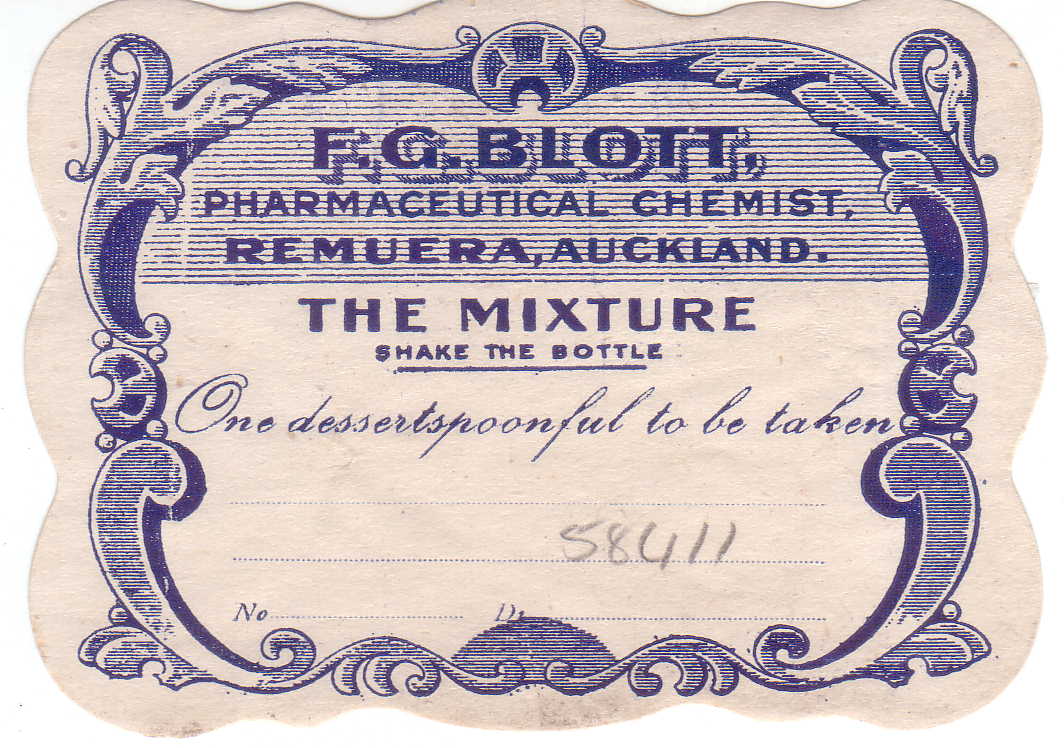 F.G. BLOTT,
PHARMACEUTICAL CHEMIST,
REMUERA, AUCKLAND.
THE MIXTURE
SHAKE THE BOTTLE
One dessertspoonful to be taken
58411
No Dr